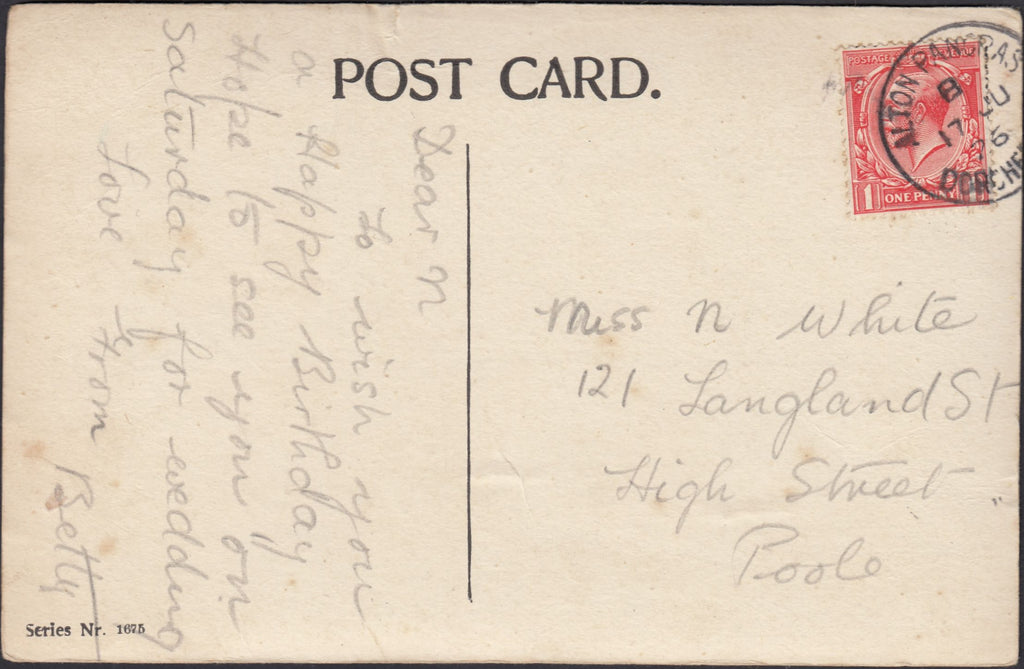 POST CARD.
POSTAGE REVENUE
1 ONE PENNY 1
ALTON PANCRAS
8 JU
17
26
DORCHE
Dear N
to wish you
a Happy Birthday
Hope to see you on
Saturday for wedding
Love from Betty
Miss N White
121 Langland St
High Street
Poole
Series Nr. 1675